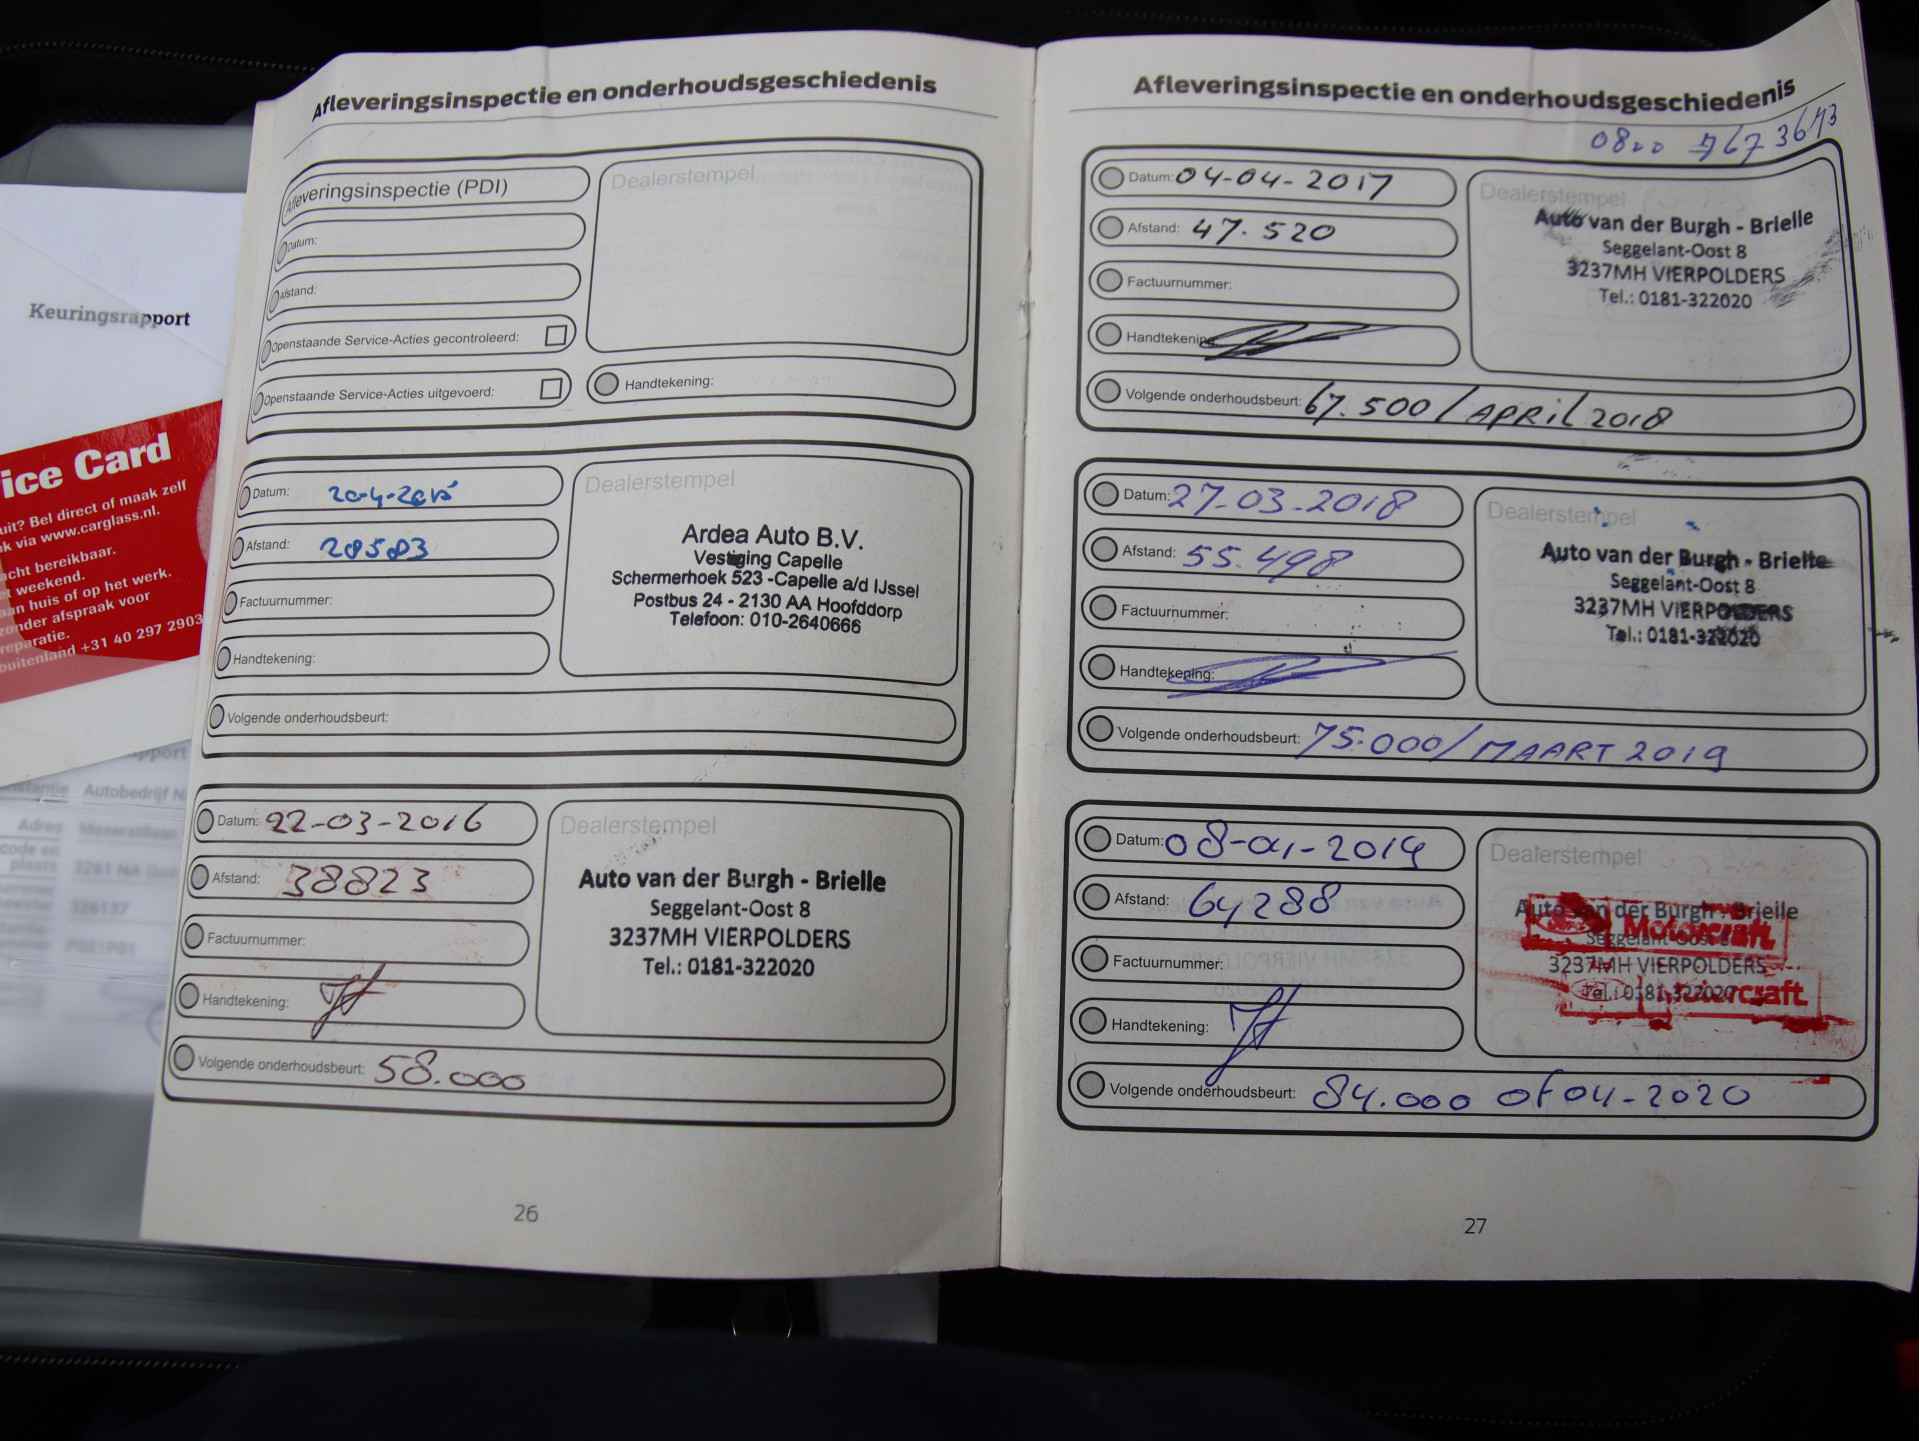 Keuringsrapport
ice Card
uit? Bel direct of maak zelf
k via www.carglass.nl.
acht bereikbaar.
t weekend.
an huis of op het werk.
zonder afspraak voor
reparatie.
buitenland +31 40 297 2903
pport
Autobedrijf
Adres
code en
plaats
Afleveringsinspectie en onderhoudsgeschiedenis
Afleveringsinspectie (PDI)
Datum:
Afstand:
Openstaande Service-Acties gecontroleerd:
Openstaande Service-Acties uitgevoerd:
Dealerstempel
Handtekening:
Datum: 20-4-2015
Afstand: 28583
Factuurnummer:
Handtekening:
Volgende onderhoudsbeurt:
Dealerstempel
Ardea Auto B.V.
Vestiging Capelle
Schermerhoek 523 -Capelle a/d IJssel
Postbus 24 - 2130 AA Hoofddorp
Telefoon: 010-2640666
Datum: 22-03-2016
Afstand: 38823
Factuurnummer:
Handtekening:
Volgende onderhoudsbeurt: 58.000
Dealerstempel
Auto van der Burgh - Brielle
Seggelant-Oost 8
3237MH VIERPOLDERS
Tel.: 0181-322020
26
Afleveringsinspectie en onderhoudsgeschiedenis
0800 767 3673
Datum: 04-04-2017
Afstand: 47.520
Factuurnummer:
Handtekening:
Volgende onderhoudsbeurt: 67.500 / APRIL 2018
Dealerstempel
Auto van der Burgh - Brielle
Seggelant-Oost 8
3237MH VIERPOLDERS
Tel.: 0181-322020
Datum: 27-03-2018
Afstand: 55.498
Factuurnummer:
Handtekening:
Volgende onderhoudsbeurt: 75.000 / MAART 2019
Dealerstempel
Auto van der Burgh - Brielle
Seggelant-Oost 8
3237MH VIERPOLDERS
Tel.: 0181-322020
Datum: 08-01-2019
Afstand: 64288
Factuurnummer:
Handtekening:
Volgende onderhoudsbeurt: 84.000 of 04-2020
Dealerstempel
Auto van der Burgh - Brielle
Motorcraft
Seggelant-Oost 8
3237MH VIERPOLDERS
Tel.: 0181-322020
Motorcraft
27